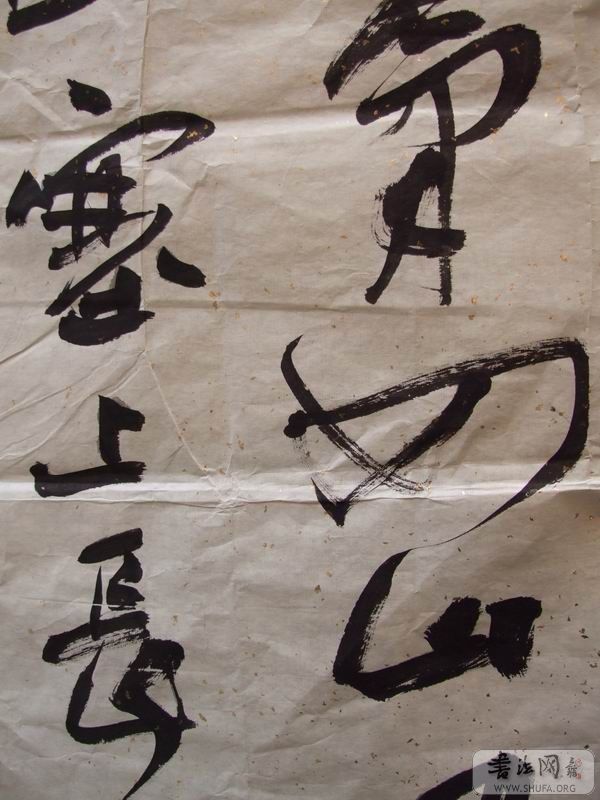 氣如山
塞上長
書法网
WWW.SHUFA.ORG